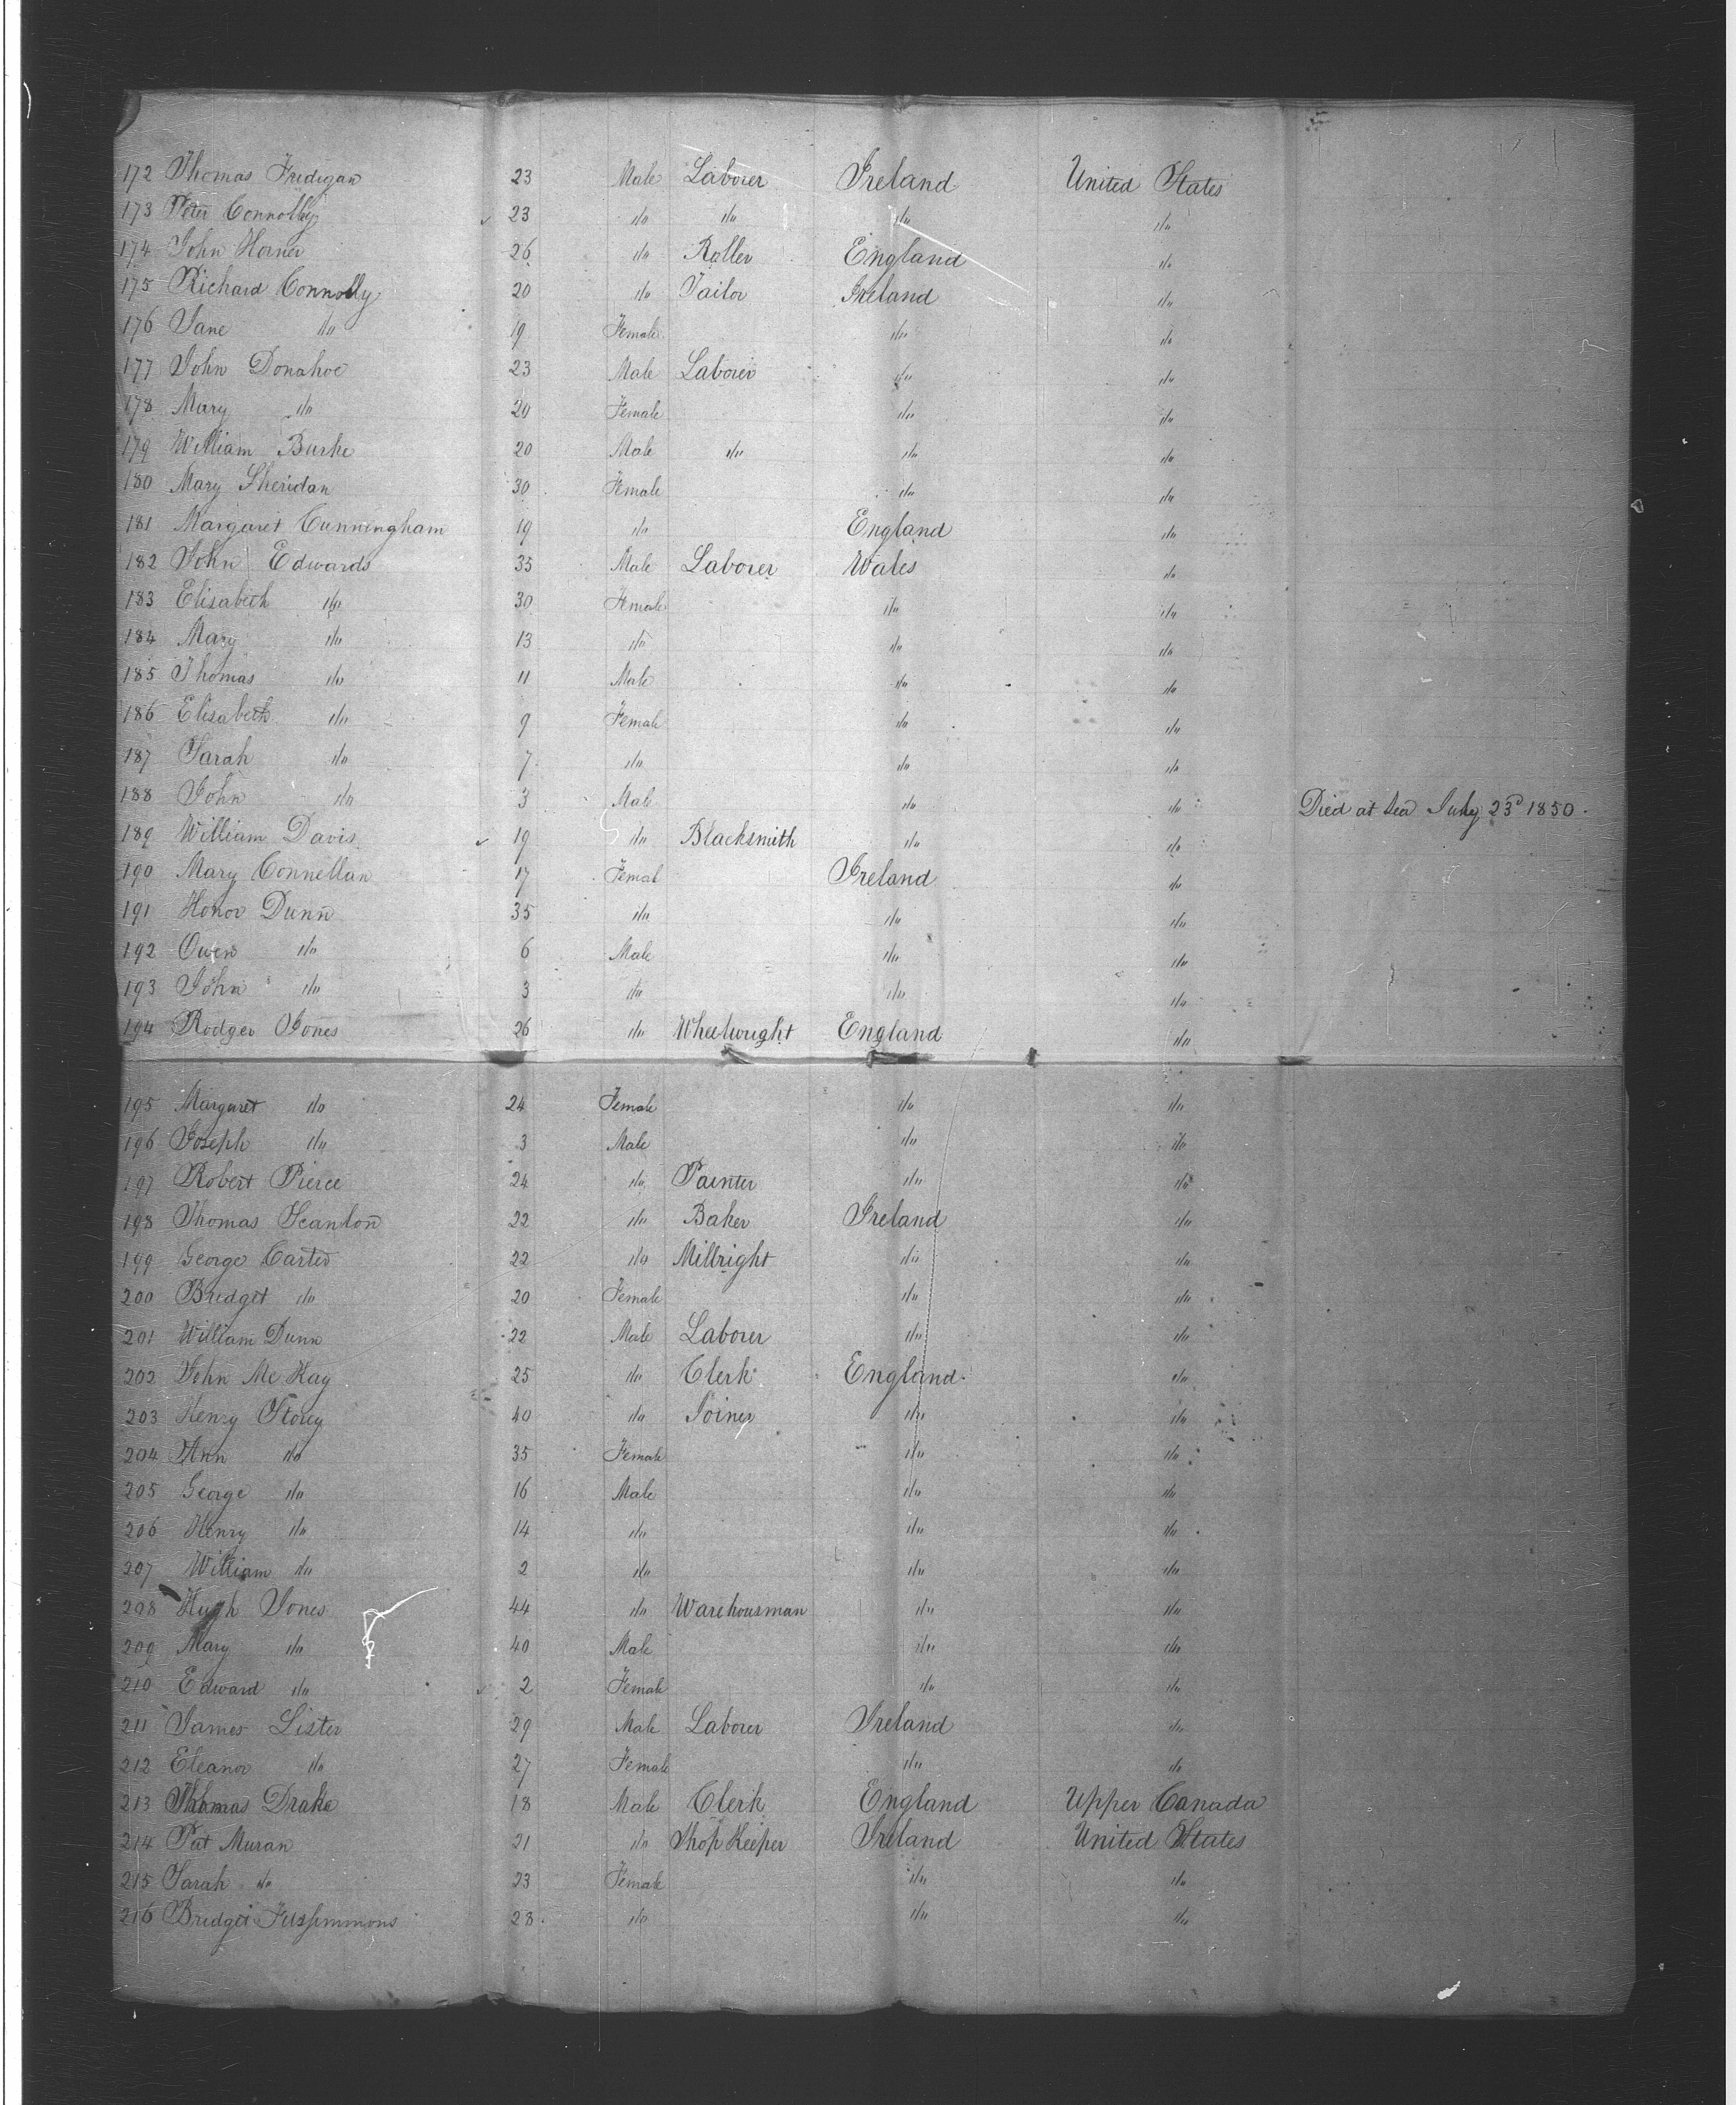 172 Thomas Fridigan 23 Male Laborer Ireland United States
173 Peter Connolly 23 do do do do
174 John Horner 26 do Roller England do
175 Richard Connolly 20 do Tailor Ireland do
176 Jane do 19 Female do do
177 John Donahoe 23 Male Laborer do do
178 Mary do 20 Female do do
179 William Burke 20 Male do do do
180 Mary Sheridan 30 Female do do
181 Margaret Cunningham 19 do England do
182 John Edwards 35 Male Laborer Wales do
183 Elisabeth do 30 Female do do
184 Mary do 13 do do do
185 Thomas do 11 Male do do
186 Elisabeth do 9 Female do do
187 Sarah do 7 do do do
188 John do 3 Male do do Died at Sea July 23d 1850.
189 William Davis 19 do Blacksmith do do
190 Mary Connellan 17 Femal Ireland do
191 Honor Dunn 35 do do do
192 Owen do 6 Male do do
193 John do 3 do do do
194 Rodger Jones 26 do Wheelwright England do
195 Margaret do 24 Female do do
196 Joseph do 3 Male do do
197 Robert Pierce 24 do Painter do do
198 Thomas Scanlon 22 do Baker Ireland do
199 George Carter 22 do Millright do do
200 Bridget do 20 Female do do
201 William Dunn 22 Male Laborer do do
202 John Mc Kay 25 do Clerk England do
203 Henry Storey 40 do Joiner do do
204 Ann do 35 Female do do
205 George do 16 Male do do
206 Henry do 14 do do do
207 William do 2 do do do
208 Hugh Jones 44 do Warehousman do do
209 Mary do 40 Male do do
210 Edward do 2 Female do do
211 James Lister 29 Male Laborer Ireland do
212 Eleanor do 27 Female do do
213 Thomas Drake 18 Male Clerk England Upper Canada
214 Pat Muran 21 do Shop Keeper Ireland United States
215 Sarah do 23 Female do do
216 Bridget Fitzsimmons 28 do do do